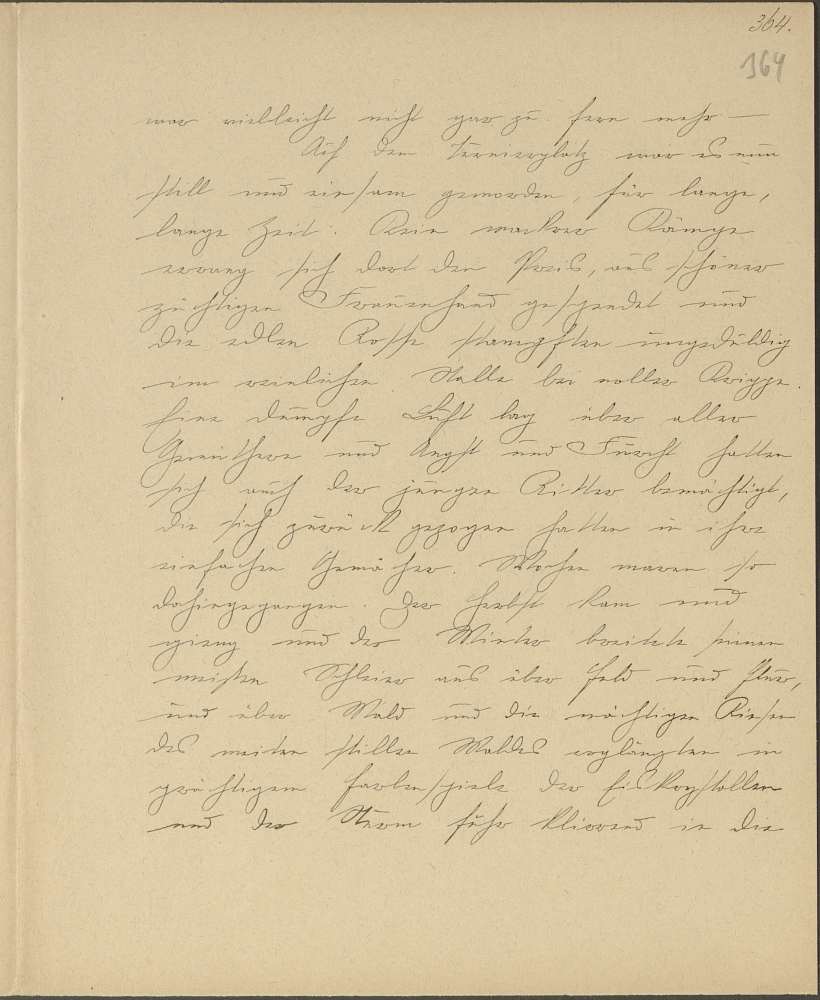 364.
364
war vielleicht nicht gar zu fern mehr —
Auf dem Turnierplatz war es nun
still und einsam geworden, für lange,
lange Zeit. Kein wackrer Kämpe
errang sich dort den Preis, aus schöner
züchtigen Frauenhand gespendet und
die edlen Rosse stampften ungeduldig
im reinlichen Stalle bei voller Krippe.
Eine dumpfe Luft lag über aller
Gemüthern und Angst und Furcht hatten
sich auch der jungen Ritter bemächtigt,
die sich zurück gezogen hatten in ihre
einfachen Gemächer. Wochen waren so
dahingegangen. Der Herbst kam und
gieng und der Winter breitete seinen
weißen Schleier aus über Feld und Flur,
und über Wald und die mächtigen Riesen
des weiten stillen Waldes erglänzten im
prächtigem Farbenspiele der Eiskrystallen
und der Sturm fuhr klirrend in die